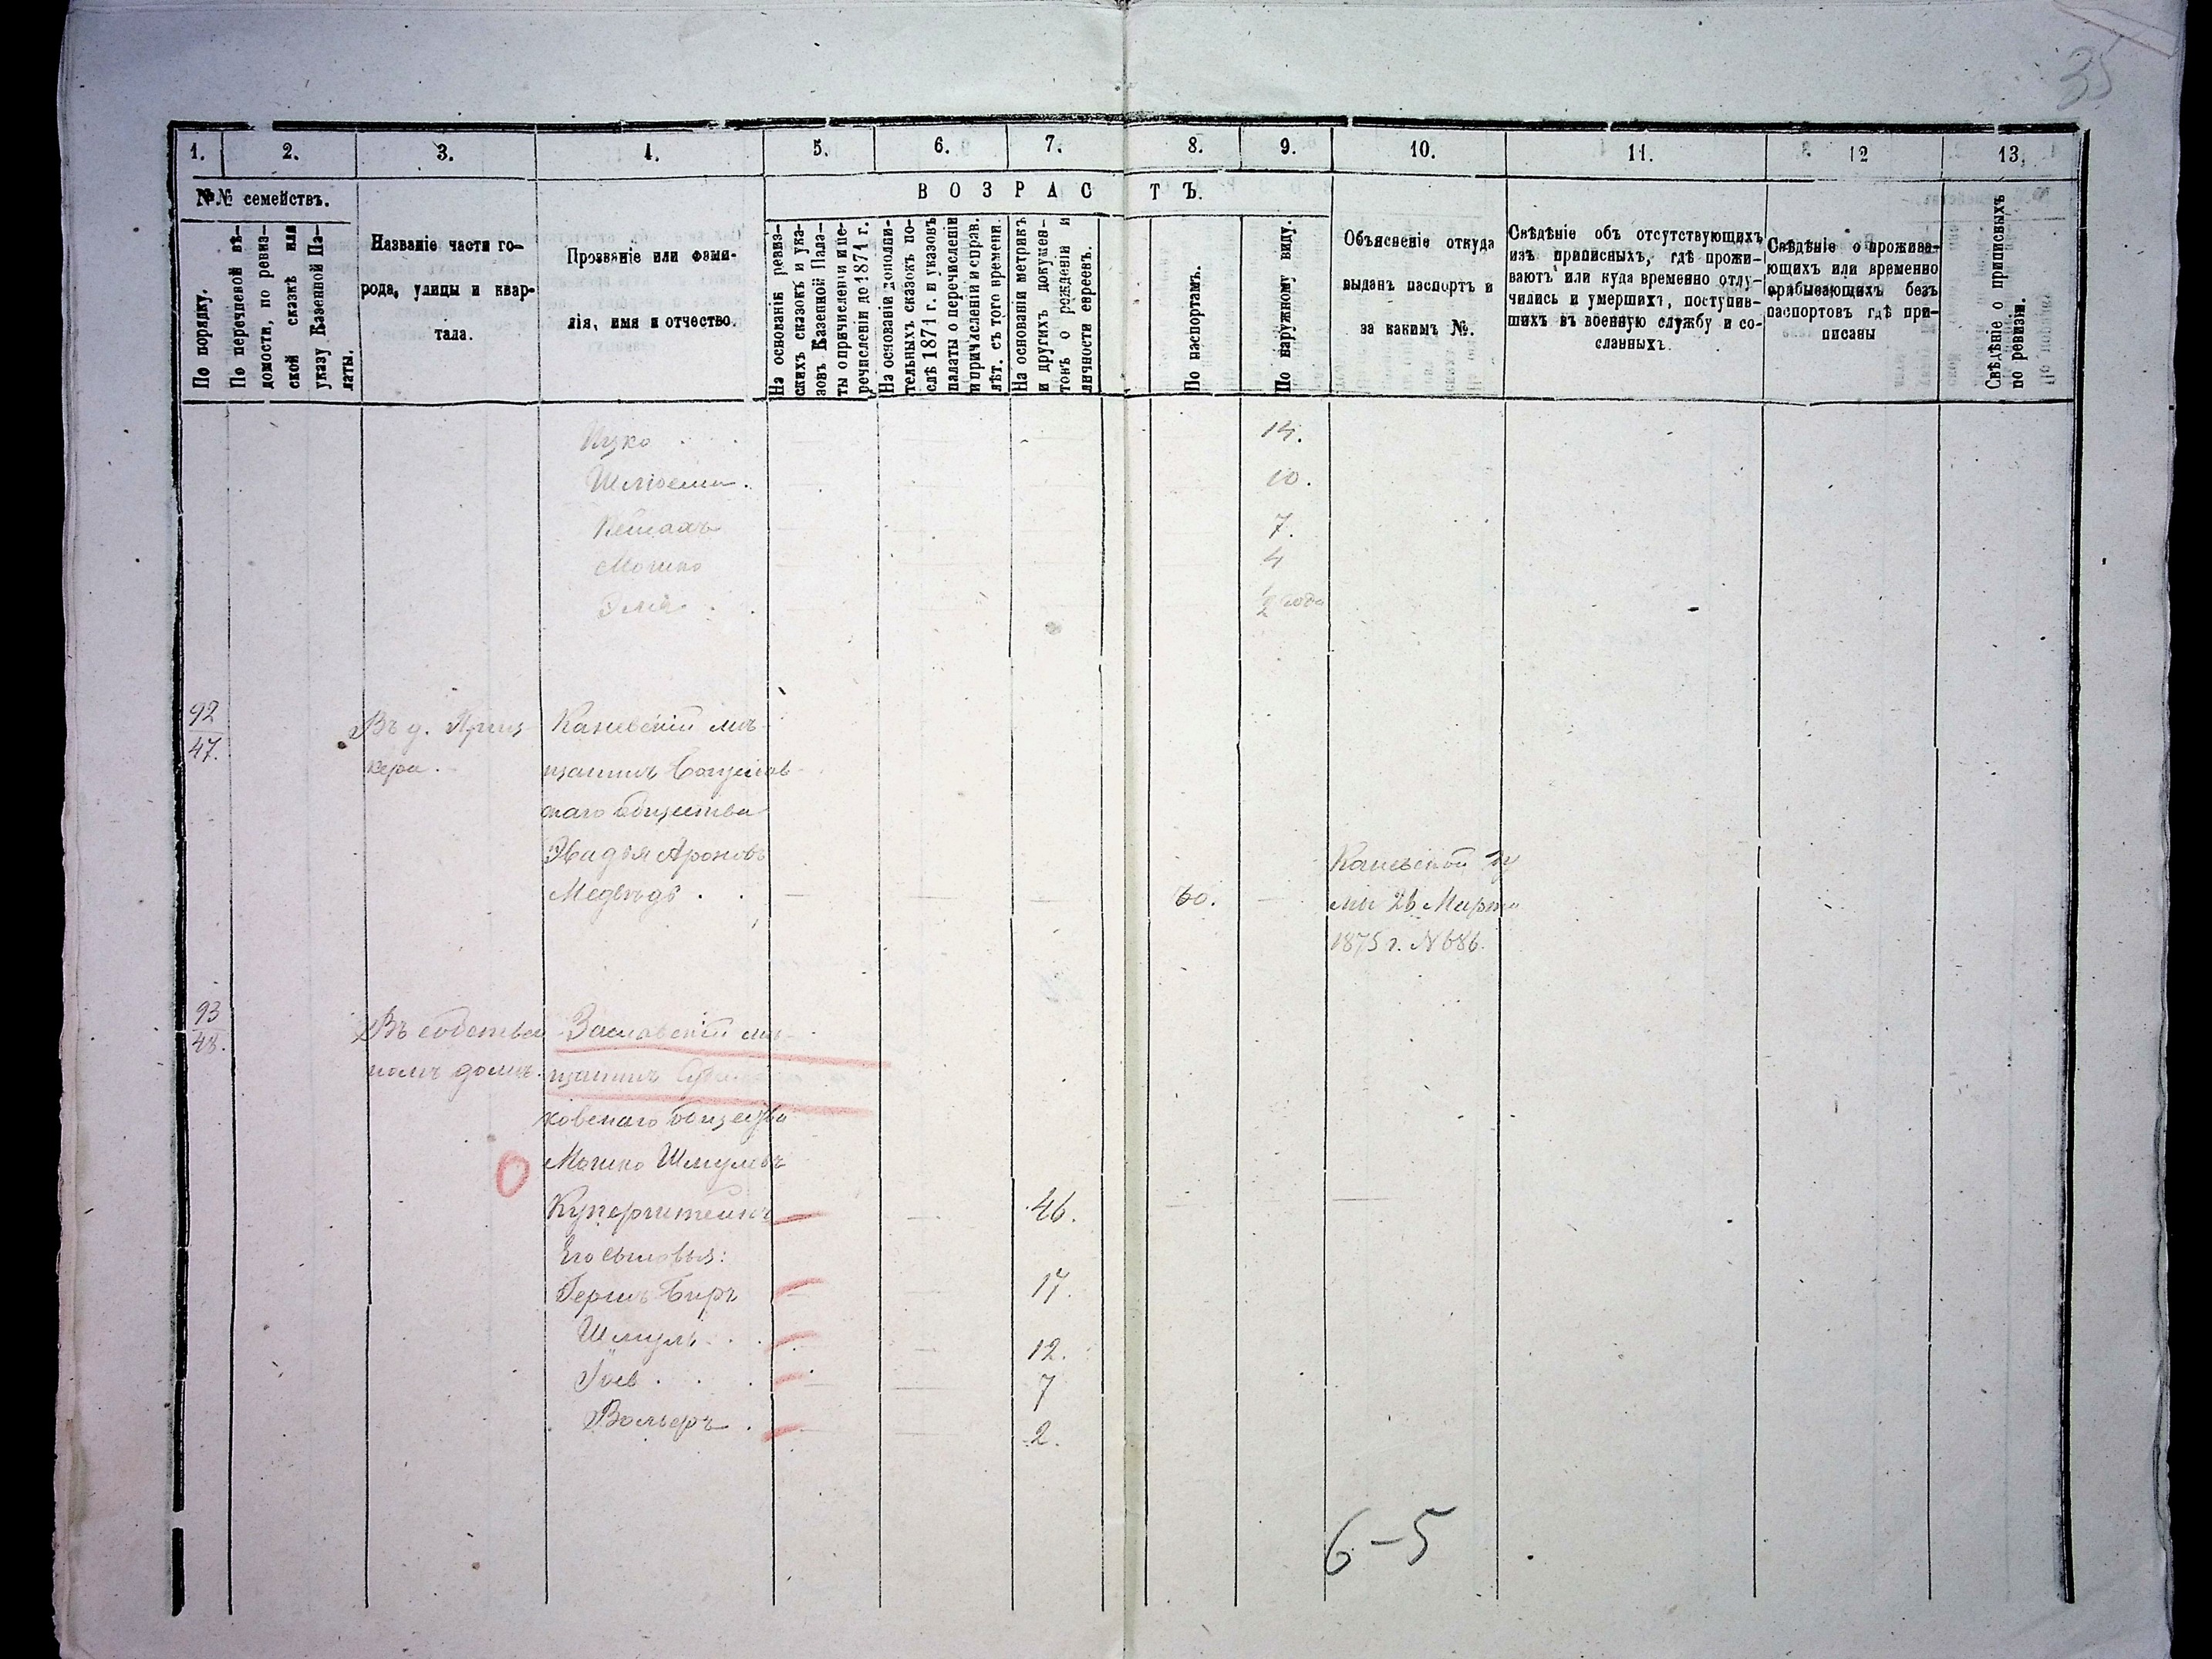 35
1. 2. 3. 4. 5. 6. 7. 8. 9. 10. 11. 12 13.
№№ семействъ.
По порядку.
По перечневой вѣ-
домости, по ревиз-
ской сказкѣ или
указу Казенной Па-
латы.
Названіе части го-
рода, улицы и квар-
тала.
Прозваніе или фами-
лія, имя и отчество.
ВОЗРАСТЪ.
На основаніи ревиз-
скихъ сказокъ и ука-
зовъ Казенной Пала-
ты о причисленіи и пе-
речисленіи до 1871 г.
На основаніи дополни-
тельныхъ сказокъ по-
слѣ 1871 г. и указовъ
палаты о перечисленіи
и причисленіи и справ.
лѣт. съ того времени.
На основаніи метрикъ
и другихъ докумен-
товъ о рожденіи и
личности евреевъ.
По паспортамъ.
По наружному виду.
Объясненіе откуда
выданъ паспортъ и
за какимъ №.
Свѣдѣніе объ отсутствующихъ
изъ приписныхъ, гдѣ прожи-
ваютъ или куда временно отлу-
чились и умершихъ, поступив-
шихъ въ военную службу и со-
сланныхъ.
Свѣдѣніе о прожива-
ющихъ или временно
прибывающихъ безъ
паспортовъ гдѣ при-
писаны
Свѣдѣніе о приписныхъ
по ревизіи.
Ицко 14.
10.
7.
Мошко 4
Эля 1/2 года
92
47.
Въ д.
Каневскій мѣ-
щанинъ Богуслав-
скаго общества
Ароновъ
Медвѣдь 60.
Каневской
26 Марта
1875 г. N 686.
93
48.
Въ собствен
номъ домѣ.
Заславскій мѣ-
щанинъ
ковскаго общества
Мошко Шмулевъ
Куперштейнъ 46.
Его сыновья:
Гершъ Беръ 17.
Шмуль 12.
7
Вольферъ 2.
6-5